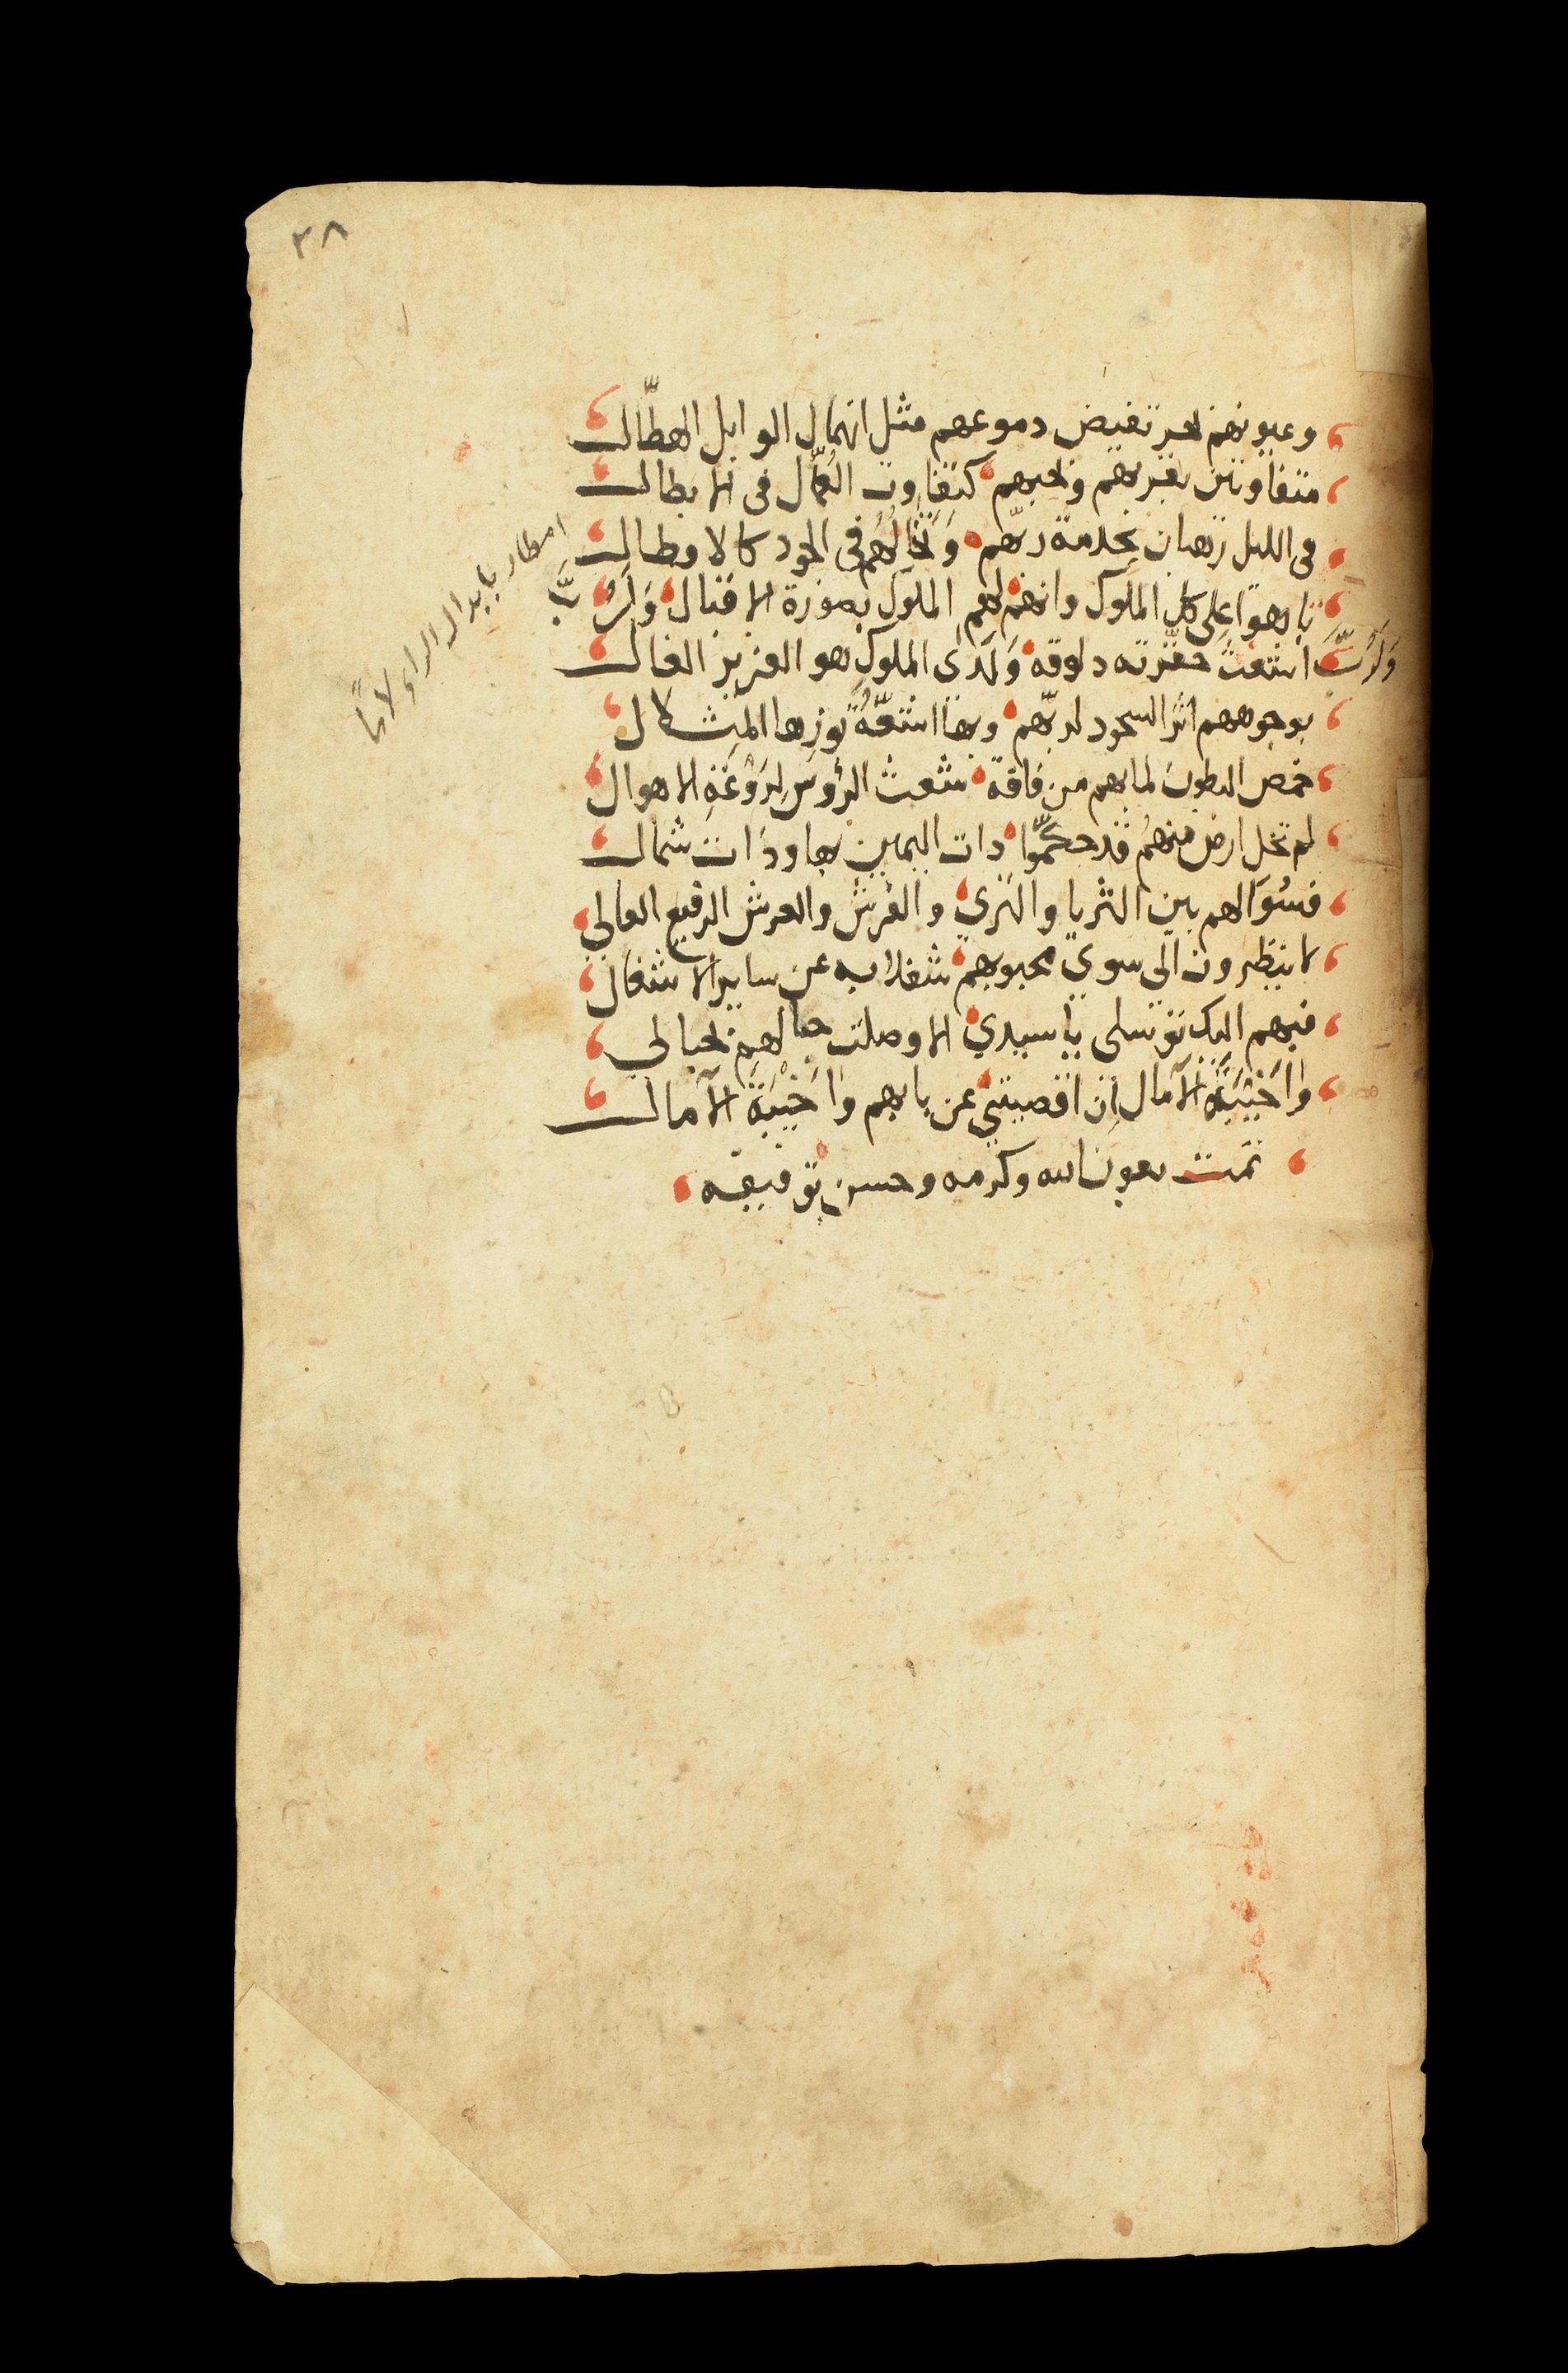 ٣٨
وعيونهم تفيض دموعهم مثل انهمال الوابل الهطّال
متفاوتين بقربهم وبحبهم كتفاوت العمّال في الابطال
في الليل رهبان بخدمة ربّهم وَتَخَالُهُم في الجود كالاوطال
تاهوا على كل الملوك وانهم لهم الملوك بصورة الاقتال
وَلَرُبَّ اشعث حقّرته دلوقه وَلَدَى الملوك هو العزيز الغال
بوجوههم اثر السجود لربّهم وبها اشعّةُ نورها المتلال
خمص البطون لما بهم من فاقة شعث الرؤوس لِرَوْعَةِ الاهوال
لم تخل ارض منهم قد حكّموا ذات اليمين بها وذات شمال
فسُوَالهم بين الثريا والثرى والفرش والعرش الرفيع العالي
لا ينظرون الى سوى محبوبهم شغلا به عن ساير الاشغال
فبهم اليك توسلي يا سيدي الا وصلت حبالهم بحبالي
واخَيْبَةَ الآمال ان اقصيتني عن بابهم واخَيْبَةَ الآمال
تمت بعون الله وكرمه وحسن توفيقه
امطار بابدال الراء لامًا